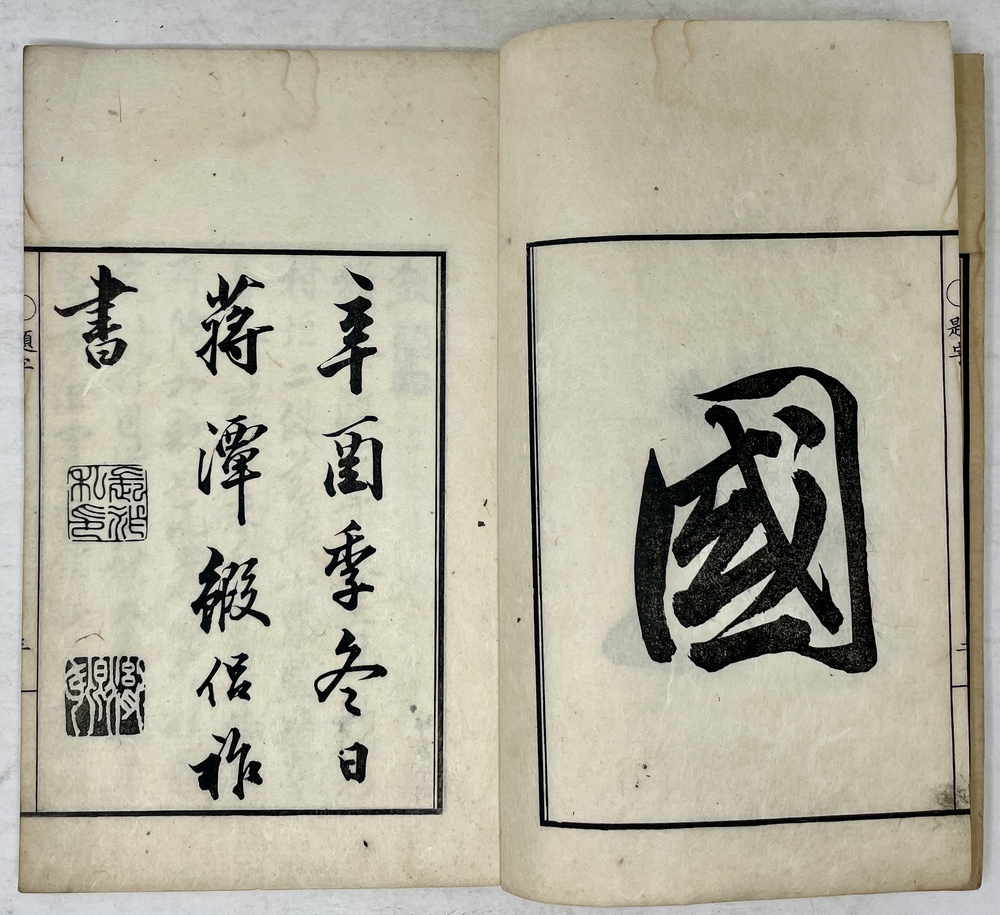 國
題字
辛酉季冬日
蔣潭侶祚
書